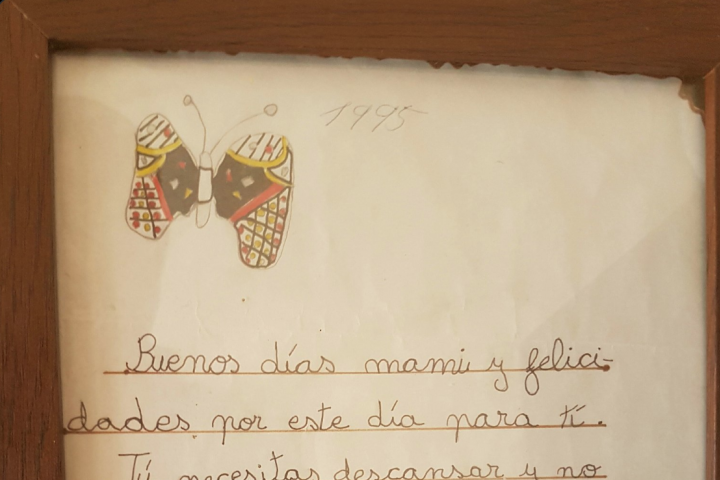 1995
Buenos días mami y felici-
dades por este día para tí.
Tú necesitas descansar y no